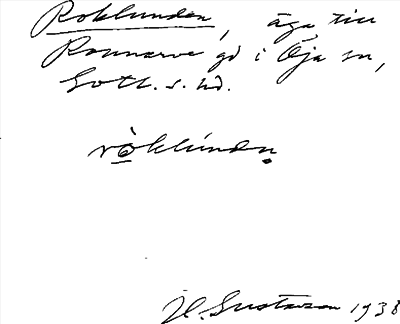 Roklunden, äga till
Ronnarve gd i Öja sn,
Gotl. s. hd.
ròklúndn
H. Gustavson 1938